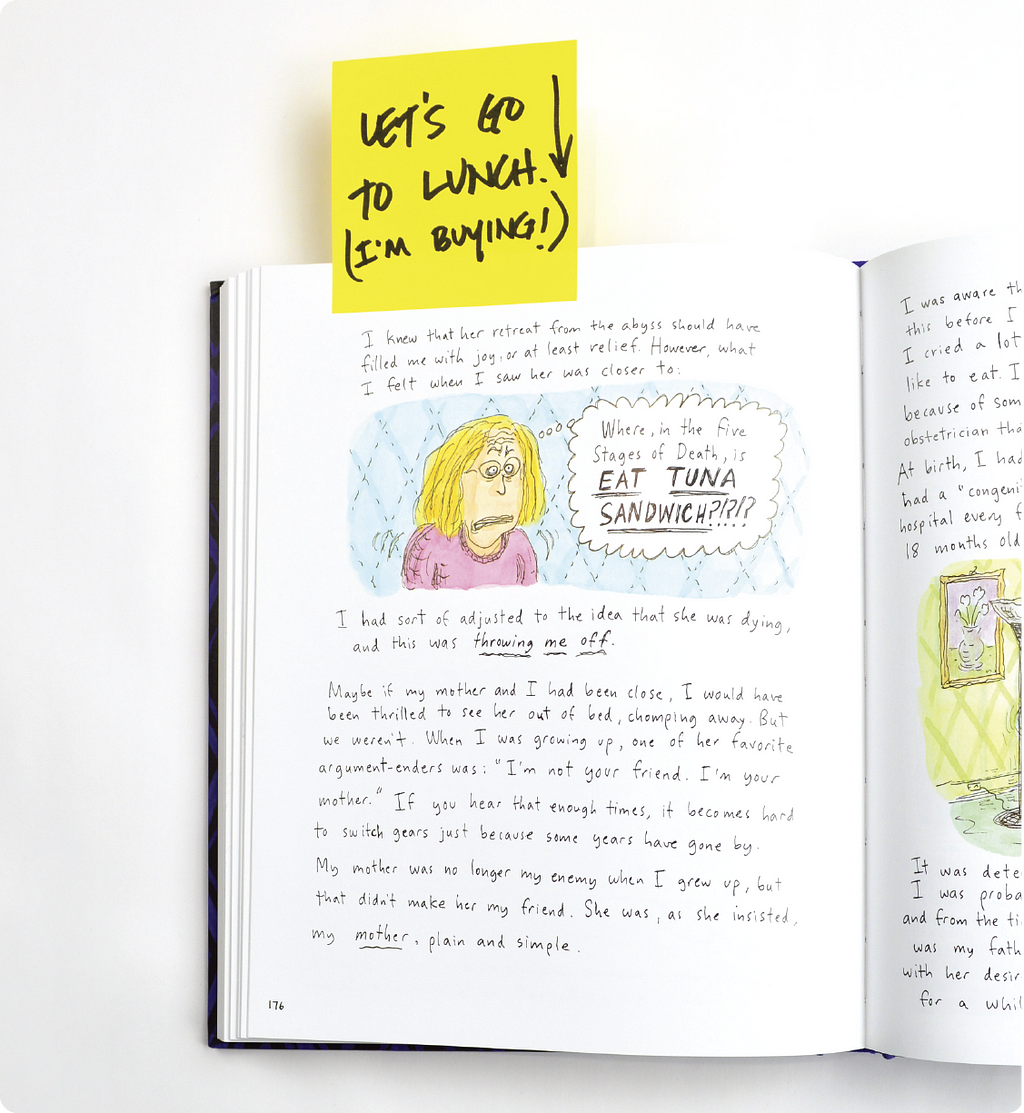 LET'S GO
TO LUNCH.
(I'M BUYING!)
I knew that her retreat from the abyss should have
filled me with joy, or at least relief. However, what
I felt when I saw her was closer to:
Where, in the five
Stages of Death, is
EAT TUNA
SANDWICH?!?!?
I had sort of adjusted to the idea that she was dying,
and this was throwing me off.
Maybe if my mother and I had been close, I would have
been thrilled to see her out of bed, chomping away. But
we weren't. When I was growing up, one of her favorite
argument-enders was: "I'm not your friend. I'm your
mother." If you hear that enough times, it becomes hard
to switch gears just because some years have gone by.
My mother was no longer my enemy when I grew up, but
that didn't make her my friend. She was, as she insisted,
my mother, plain and simple.
176
I was aware th
this before I
I cried a lot
like to eat. I
because of som
obstetrician tha
At birth, I had
had a "congeni
hospital every f
18 months old
It was dete
I was proba
and from the ti
was my fath
with her desir
for a whil